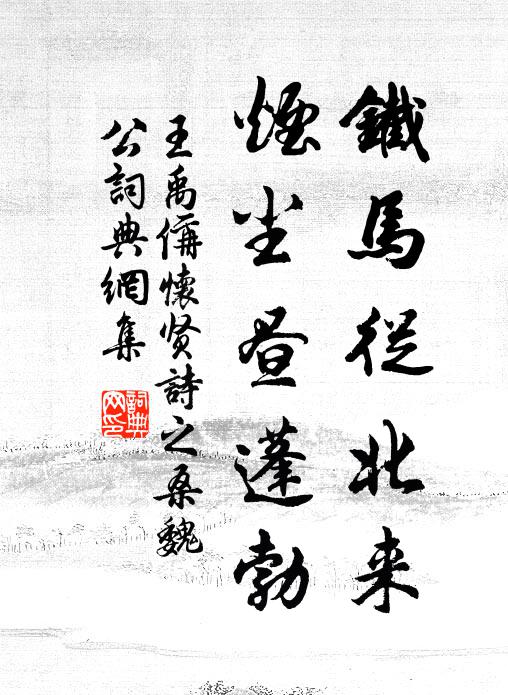 鐵馬從北来
煙尘昼蓬勃
王禹偁懷贤詩之桑魏
公詞典網集
詞典网印